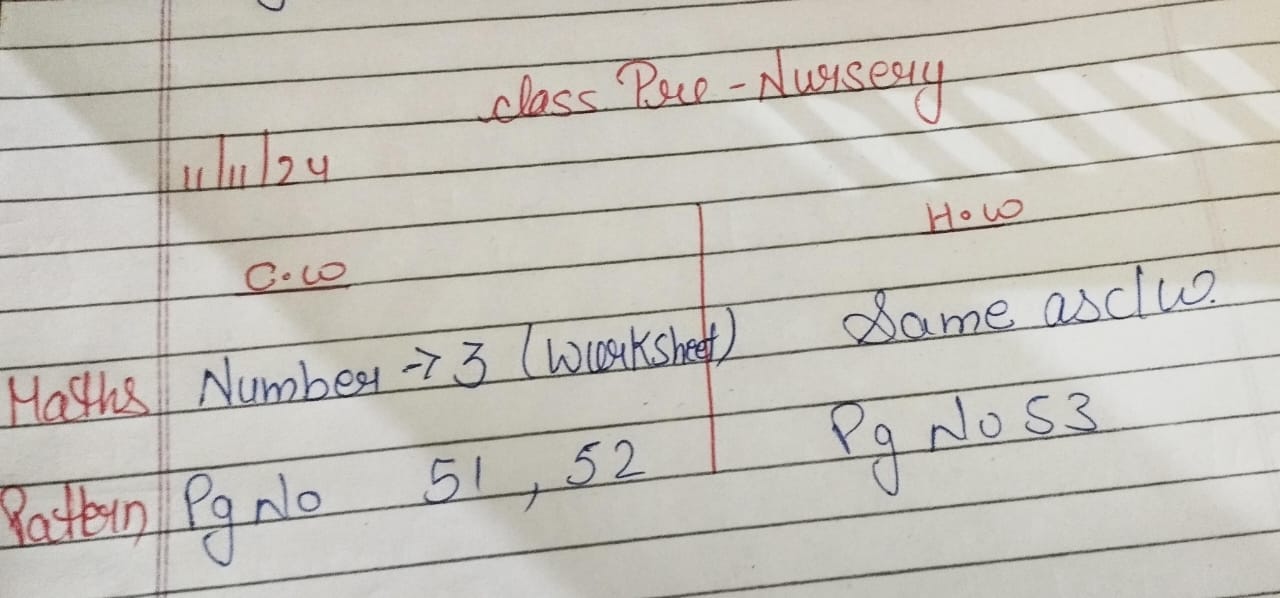 class Pre-Nursery
11/11/24
C.W
H.W
Maths Number → 3 (Worksheet) Same as c/w.
Pattern Pg No 51, 52 Pg No 53